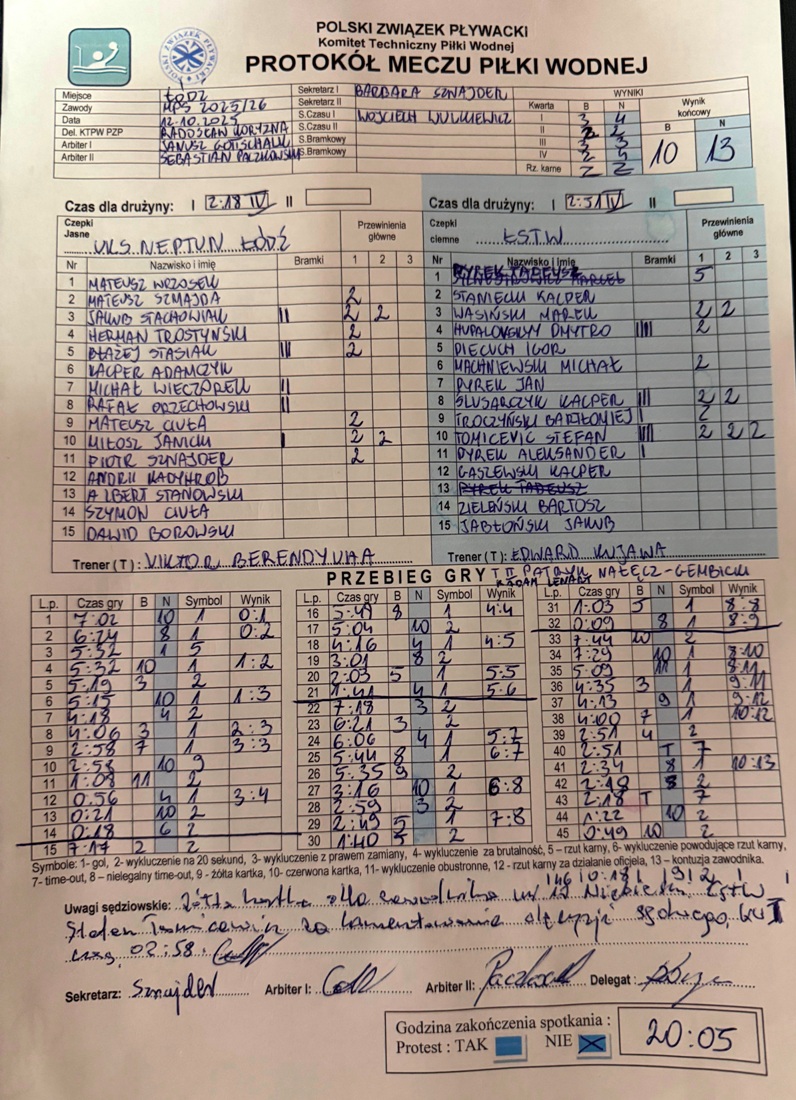 POLSKI ZWIĄZEK PŁYWACKI
Komitet Techniczny Piłki Wodnej
PROTOKÓŁ MECZU PIŁKI WODNEJ
Miejsce ŁÓDŹ
Zawody MPS 2025/26
Data 12.10.2025
Del. KTPW PZP RADOSŁAW KORYZNA
Arbiter I JANUSZ GOTSCHALK
Arbiter II SEBASTIAN PACZKOWSKI
Sekretarz I BARBARA SZNAJDER
Sekretarz II
S.Czasu I WOJCIECH WULKIEWICZ
S.Czasu II
S.Bramkowy
S.Bramkowy
WYNIKI
Kwarta B N
I 3 4
II 2 2
III 3 3
IV 2 4
Rz. karne 2 2
Wynik końcowy
B N
10 13
Czas dla drużyny: I 2:18 IV II
Czepki Jasne UKS NEPTUN ŁÓDŹ
Przewinienia główne
Nr Nazwisko i imię Bramki 1 2 3
1 MATEUSZ WRZOSEK
2 MATEUSZ SZMAJDA 2
3 JAKUB STACHOWIAK II 2 2
4 HERMAN TROSTYŃSKI 2
5 BŁAŻEJ STASIAK III 2
6 KACPER ADAMCZYK
7 MICHAŁ WIECZOREK II
8 RAFAŁ ORZECHOWSKI II
9 MATEUSZ CIUŁA 2
10 MIŁOSZ JANICKI I 2 2
11 PIOTR SZNAJDER 2
12 ANDRII KADYHROB
13 ALBERT STANOWSKI
14 SZYMON CIUŁA
15 DAWID BOROWSKI
Trener (T): VIKTOR BERENDYUHA
Czas dla drużyny: I 2:51 IV II
Czepki ciemne ŁSTW
Przewinienia główne
Nr Nazwisko i imię Bramki 1 2 3
1 PYREK TADEUSZ 5
2 STANIECKI KACPER
3 WASIŃSKI MAREK 2 2
4 HUPALOVSKYY DMYTRO IIII 2
5 PIECUCH IGOR
6 MACHNIEWSKI MICHAŁ 2
7 PYREK JAN
8 ŚLUSARCZYK KACPER III 2 2
9 TROCZYŃSKI BARTŁOMIEJ I 2
10 TOMICEVIC STEFAN IIII 2 2 2
11 PYREK ALEKSANDER I
12 GASZEWSKI KACPER
13 PYREK TADEUSZ
14 ZIELEŃSKI BARTOSZ
15 JABŁOŃSKI JAKUB
Trener (T): EDWARD KUJAWA
PRZEBIEG GRY T II PATRYK NAŁĘCZ-GEMBICKI
L.p. Czas gry B N Symbol Wynik
1 7:02 10 1 0:1
2 6:24 8 1 0:2
3 5:32 1 5
4 5:32 10 1 1:2
5 5:19 3 2
6 5:15 10 1 1:3
7 4:18 4 2
8 4:06 3 1 2:3
9 2:58 7 1 3:3
10 2:58 10 9
11 1:09 11 2
12 0:56 4 1 3:4
13 0:21 10 2
14 0:18 6 2
15 7:17 2 2
L.p. Czas gry B N Symbol Wynik
16 5:49 8 1 4:4
17 5:04 10 2
18 4:16 4 1 4:5
19 3:01 8 2
20 2:03 5 1 5:5
21 1:41 4 1 5:6
22 7:18 3 2
23 6:21 3 2
24 6:06 4 1 5:7
25 5:44 8 1 6:7
26 5:35 9 2
27 3:16 10 1 6:8
28 2:59 3 2
29 2:49 5 1 7:8
30 1:40 5 2
L.p. Czas gry B N Symbol Wynik
31 1:03 5 1 8:8
32 0:09 8 1 8:9
33 7:44 10 2
34 7:29 10 1 8:10
35 5:09 11 1 8:11
36 4:35 3 1 9:11
37 4:13 9 1 9:12
38 4:00 7 1 10:12
39 2:51 4 2
40 2:51 T 7
41 2:34 8 1 10:13
42 2:18 8 2
43 2:18 T 7
44 1:22 10 2
45 0:49 10 2
Symbole: 1- gol, 2- wykluczenie na 20 sekund, 3- wykluczenie z prawem zamiany, 4- wykluczenie za brutalność, 5 – rzut karny, 6- wykluczenie powodujące rzut karny,
7- time-out, 8 – nielegalny time-out, 9 - żółta kartka, 10- czerwona kartka, 11- wykluczenie obustronne, 12 - rzut karny za działanie oficjela, 13 – kontuzja zawodnika.
46 0:18 9 2
Uwagi sędziowskie: Żółta kartka dla zawodnika nr 10 ŁSTW
Stefan Tomicevic za komentowanie decyzji sędziego, kw I
czas 02:58.
Sekretarz: Sznajder Arbiter I: Arbiter II: Delegat:
Godzina zakończenia spotkania : 20:05
Protest : TAK NIE X